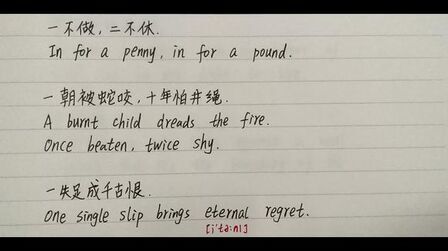 一不做，二不休.
In for a penny, in for a pound.
一朝被蛇咬，十年怕井绳.
A burnt child dreads the fire.
Once beaten, twice shy.
一失足成千古恨.
One single slip brings eternal regret.
[i'tə:nl]